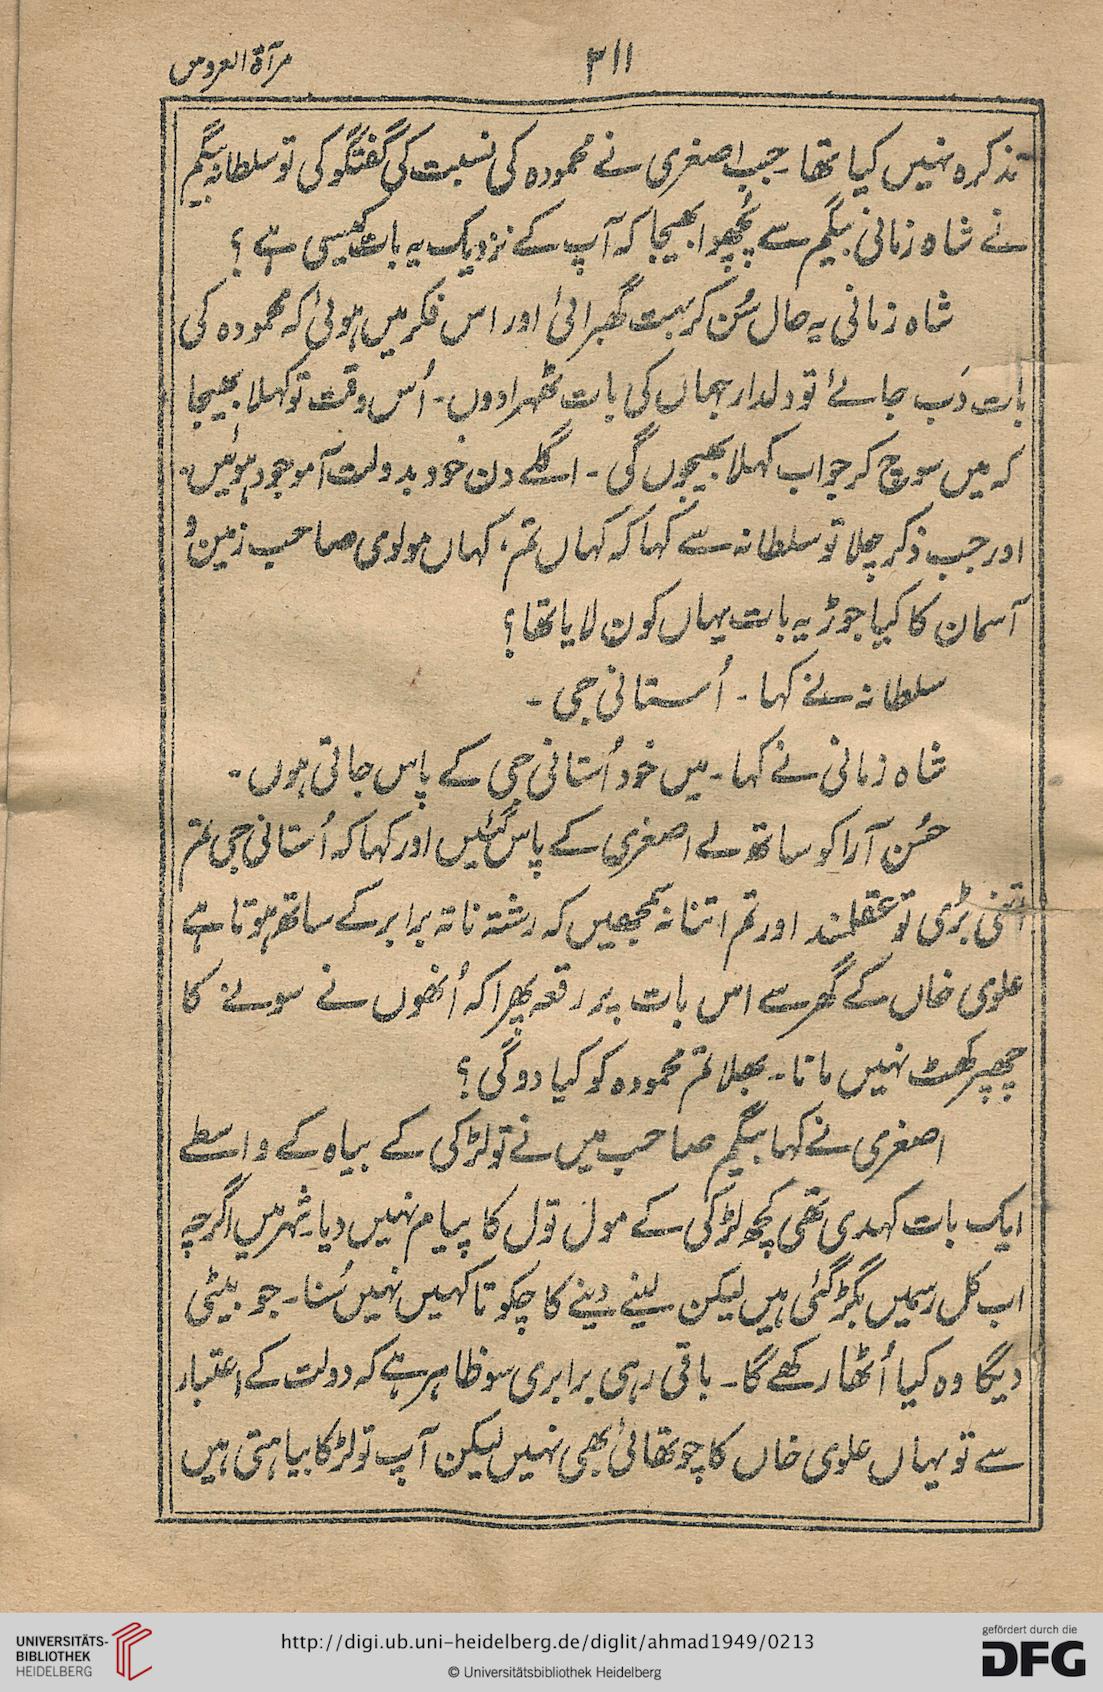 مرآۃ العروس
۲۱۱
تذکرہ نہیں کیا تھا۔ جب اصغری نے محمودہ کی نسبت کی گفتگو کی تو سلطانہ بیگم
نے شاہ زمانی بیگم سے پُچھوا بھیجا کہ آپ کے نزدیک یہ بات کیسی ہے ؟
شاہ زمانی یہ حال سُن کر بہت گھبرائی اور اس فکر میں ہوئی کہ محمودہ کی
بات دَب جائے تو دلدار جہاں کی بات ٹھہرا دوں۔ اُس وقت تو کہلا بھیجا
کہ میں سوچ کر جواب کہلا بھیجوں گی ۔ اگلے دن خود بدولت آموجود ہوئیں۔
اور جب ذکر چلا تو سلطانہ سے کہا کہ کہاں تم، کہاں مولوی صاحب زمین وُ
آسمان کا کیا جوڑ یہ بات یہاں کون لایا تھا ؟
سلطانہ نے کہا ۔ اُستانی جی ۔
شاہ زمانی نے کہا ۔ میں خود اُستانی جی کے پاس جاتی ہوں ۔
حُسن آرا کو ساتھ لے اصغری کے پاس گئیں اور کہا کہ اُستانی جی تم
اتنی بڑی تو عقلمند اور تم اتنا نہ سمجھیں کہ رشتہ ناتہ برابر کے ساتھ ہوتا ہے
علوی خاں کے گھر سے اس بات پر رقعہ پھرا کہ اُنھوں نے سونے کا
چھپر کھٹ نہیں مانا ۔ بھلا تم محمودہ کو کیا دوگی ؟
اصغری نے کہا بیگم صاحب میں نے تو لڑکی کے بیاہ کے واسطے
ایک بات کہدی تھی کچھ لڑکی کے مول تول کا پیام نہیں دیا۔ شہر میں اگرچہ
اب کل رسمیں بگڑ گئی ہیں لیکن لینے دینے کا چکوتا کہیں نہیں سُنا ۔ جو بیٹی
دیگا وہ کیا اُٹھا رکھے گا۔ باقی رہی برابری سو ظاہر ہے کہ دولت کے اعتبار
سے تو یہاں علوی خاں کا چوتھائی بھی نہیں لیکن آپ تو لڑکا بیاہتی ہیں
UNIVERSITÄTS-
BIBLIOTHEK
HEIDELBERG
http://digi.ub.uni-heidelberg.de/diglit/ahmad1949/0213
© Universitätsbibliothek Heidelberg
gefördert durch die
DFG